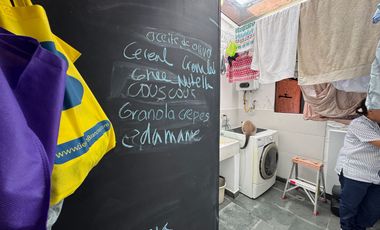 aceite de oliva
Cereal
Ghee Nutella
couscous
Granola crepes
edamame